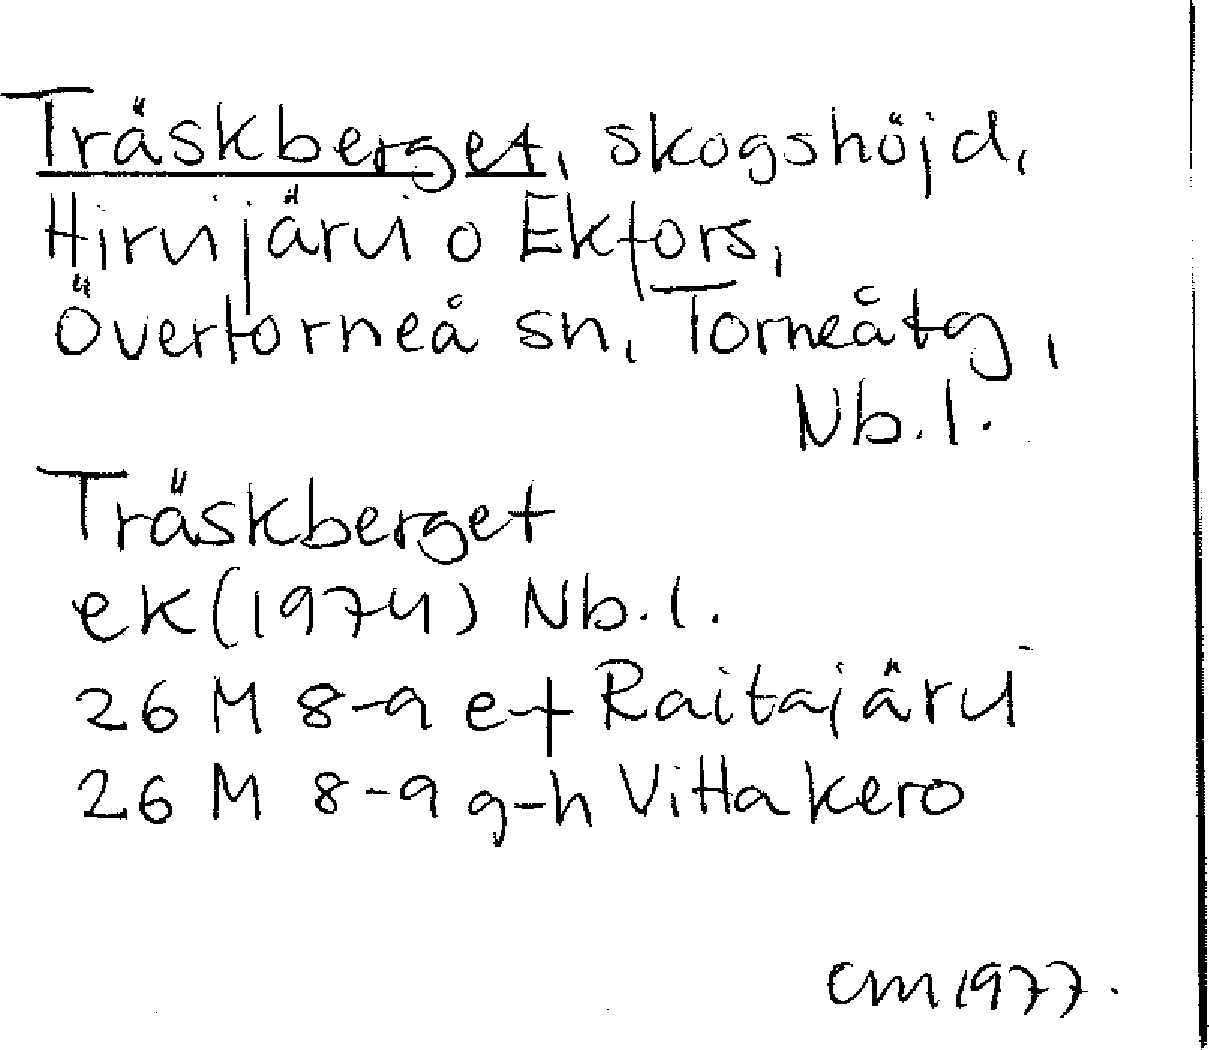 Träskberget, skogshöjd,
Hirvijärvi o Ekfors,
Övertorneå sn, Torneåtg,
Nb.l.
Träskberget
ek(1974) Nb.l.
26 M 8-9 e-f Raitajärvi
26 M 8-9 g-h Vittakero
CM 1977.